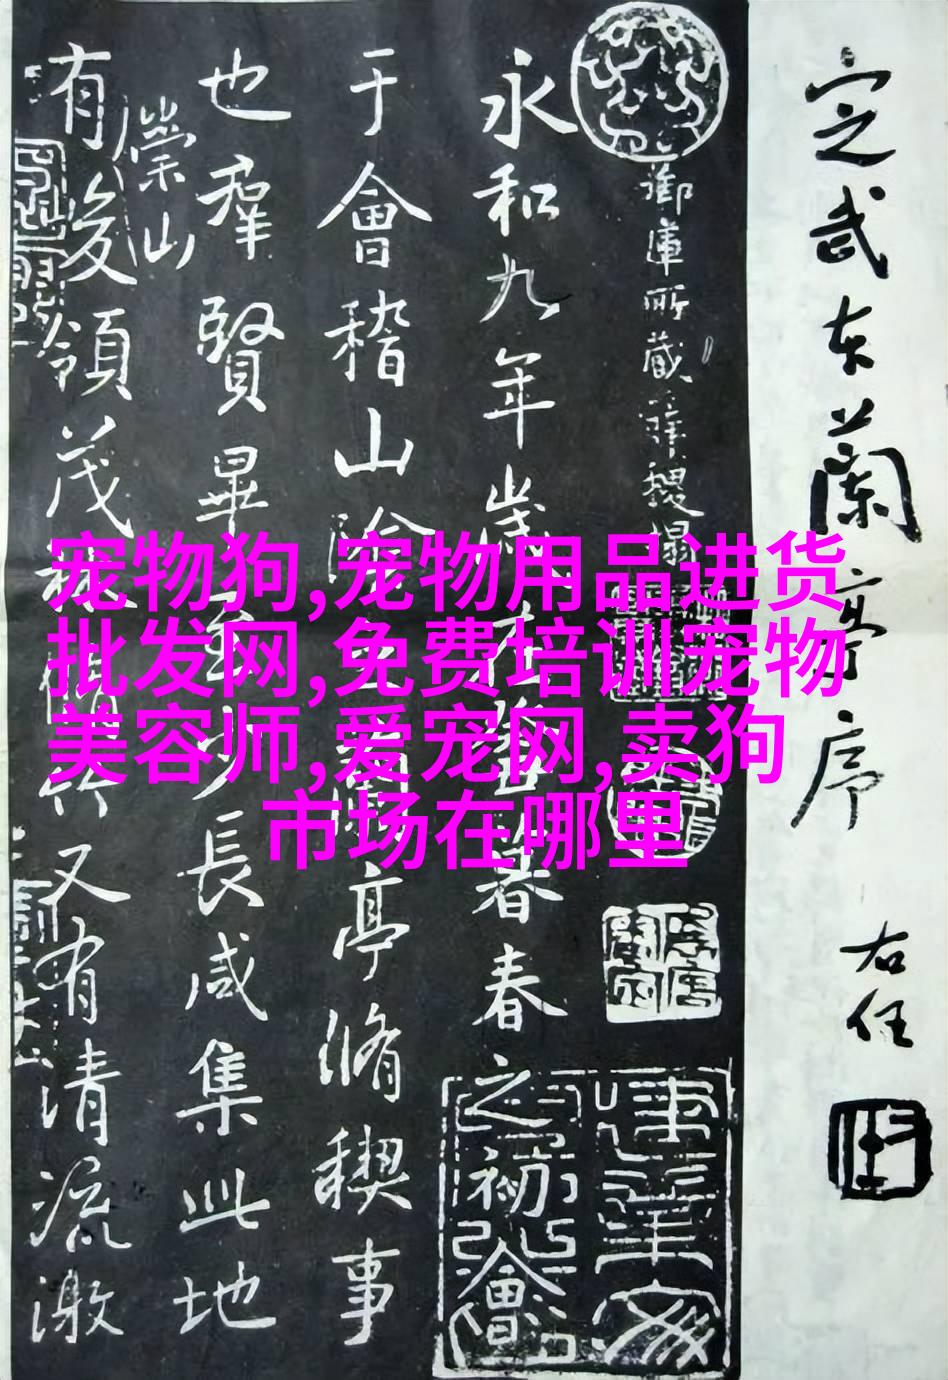 定武本蘭亭序
右任
御庫所藏薛稷搨
永和九年歲在癸丑暮春之初會
于會稽山陰之蘭亭脩稧事
也羣賢畢至少長咸集此地
崇山
有峻領茂林脩竹又有清流激
宠物狗,宠物用品进货
批发网,免费培训宠物
美容师,爱宠网,卖狗
市场在哪里